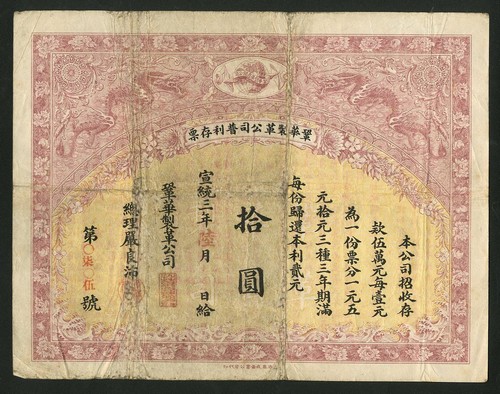 冀華製革公司普利存票
本公司招收存
款伍萬元每壹元
為一份票分一元五
元拾元三種三年期滿
每份歸還本利貳元
拾圓
宣統三年陸月 日給
鞏華製革公司
總理嚴良沛
第〇柒伍號